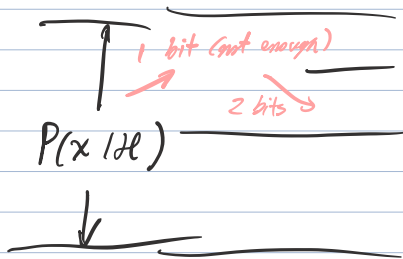 1 bit (not enough)
2 bits
P(x|H)